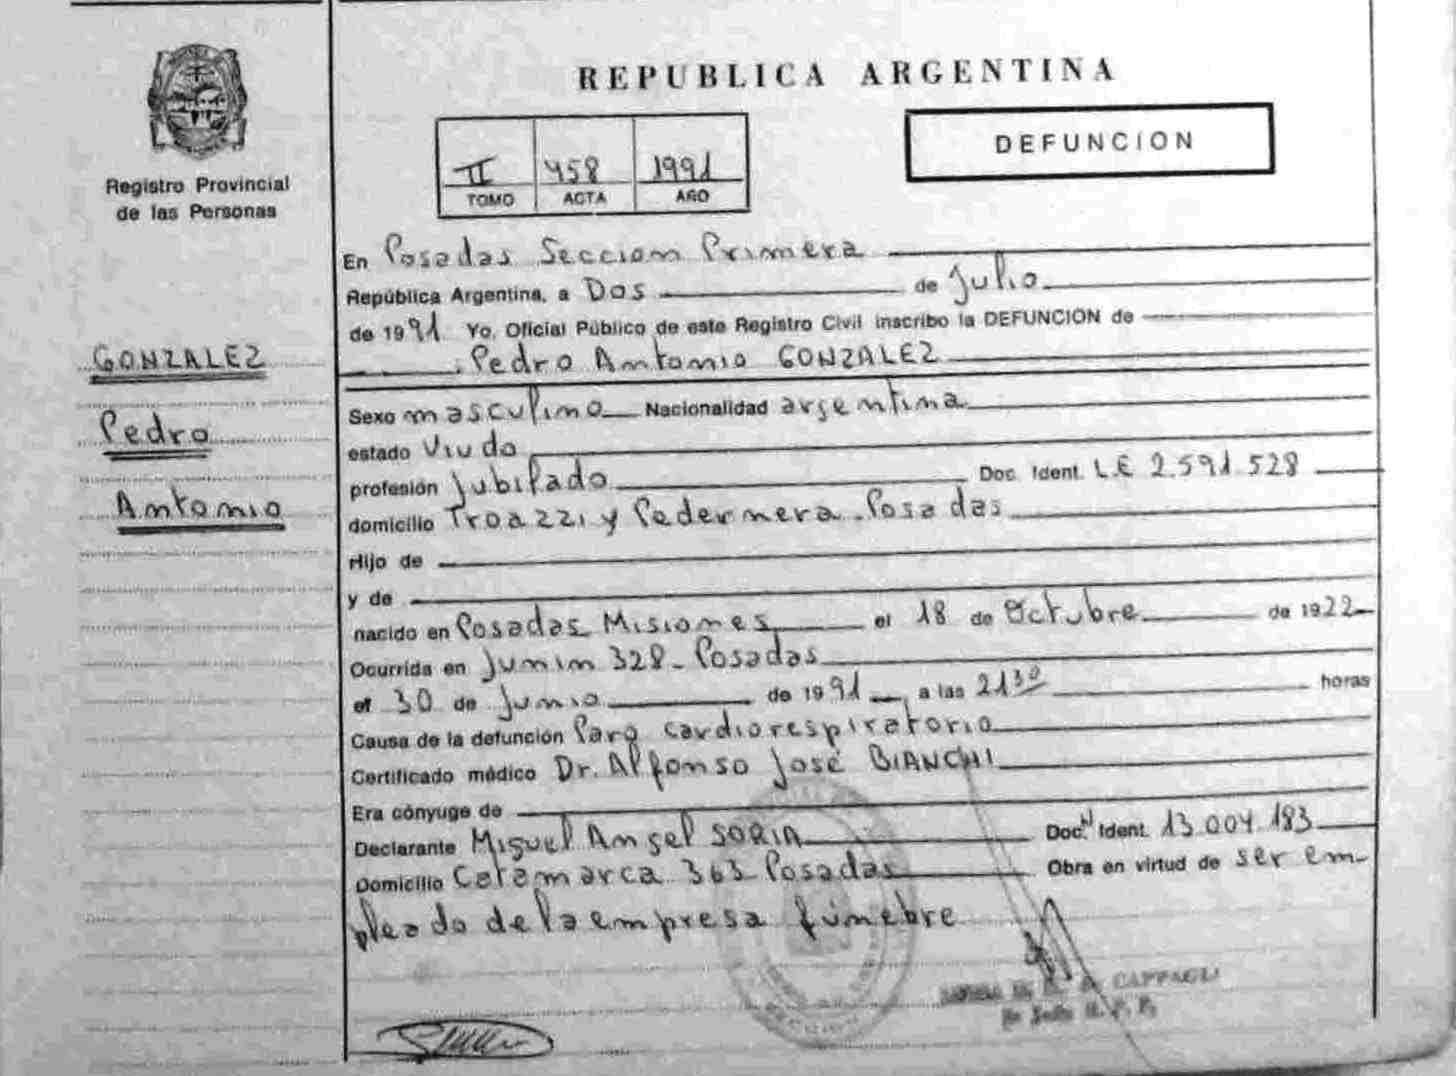 REPUBLICA ARGENTINA
Registro Provincial
de las Personas
II 458 1991
TOMO ACTA AÑO
DEFUNCION
GONZALEZ
Pedro
Antonio
En Posadas Seccion Primera
República Argentina, a Dos de Julio
de 1991 Yo, Oficial Público de este Registro Civil inscribo la DEFUNCION de
Pedro Antonio GONZALEZ
Sexo masculino Nacionalidad argentina
estado Viudo
profesión Jubilado Doc. Ident. L.E 2.591.528
domicilio y Pedernera - Posadas
Hijo de
y de
nacido en Posadas Misiones el 18 de Octubre de 1922
Ocurrida en Junin 328 - Posadas
el 30 de Junio de 1991, a las 21 30 horas
Causa de la defunción Paro cardiorespiratorio
Certificado médico Dr. Alfonso José BIANCHI
Era cónyuge de
Declarante Miguel Angel SORIA Doc. Ident. 13.004.183
Domicilio Catamarca 363 - Posadas Obra en virtud de ser em-
pleado de la empresa fúnebre
CAPPAGLI